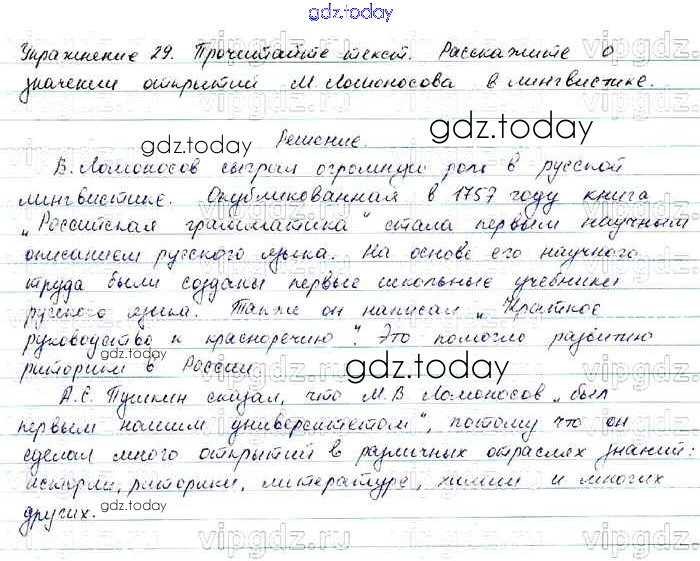 gdz.today
Упражнение 29. Прочитайте текст. Расскажите о
значении открытий М. Ломоносова в лингвистике.
gdz.today
Решение.
gdz.today
В. Ломоносов сыграл огромную роль в русской
лингвистике. Опубликованная в 1757 году книга
„Российская грамматика“ стала первым научным
описанием русского языка. На основе его научного
труда были созданы первые школьные учебники
русского языка. Также он написал „Краткое
руководство к красноречию“. Это помогло развитию
риторики в России.
gdz.today
А.С. Пушкин сказал, что М.В Ломоносов „был
первым нашим университетом“, потому что он
сделал много открытий в различных отраслях знаний:
истории, риторики, литературе, химии и многих
других.
gdz.today
vipgdz.today